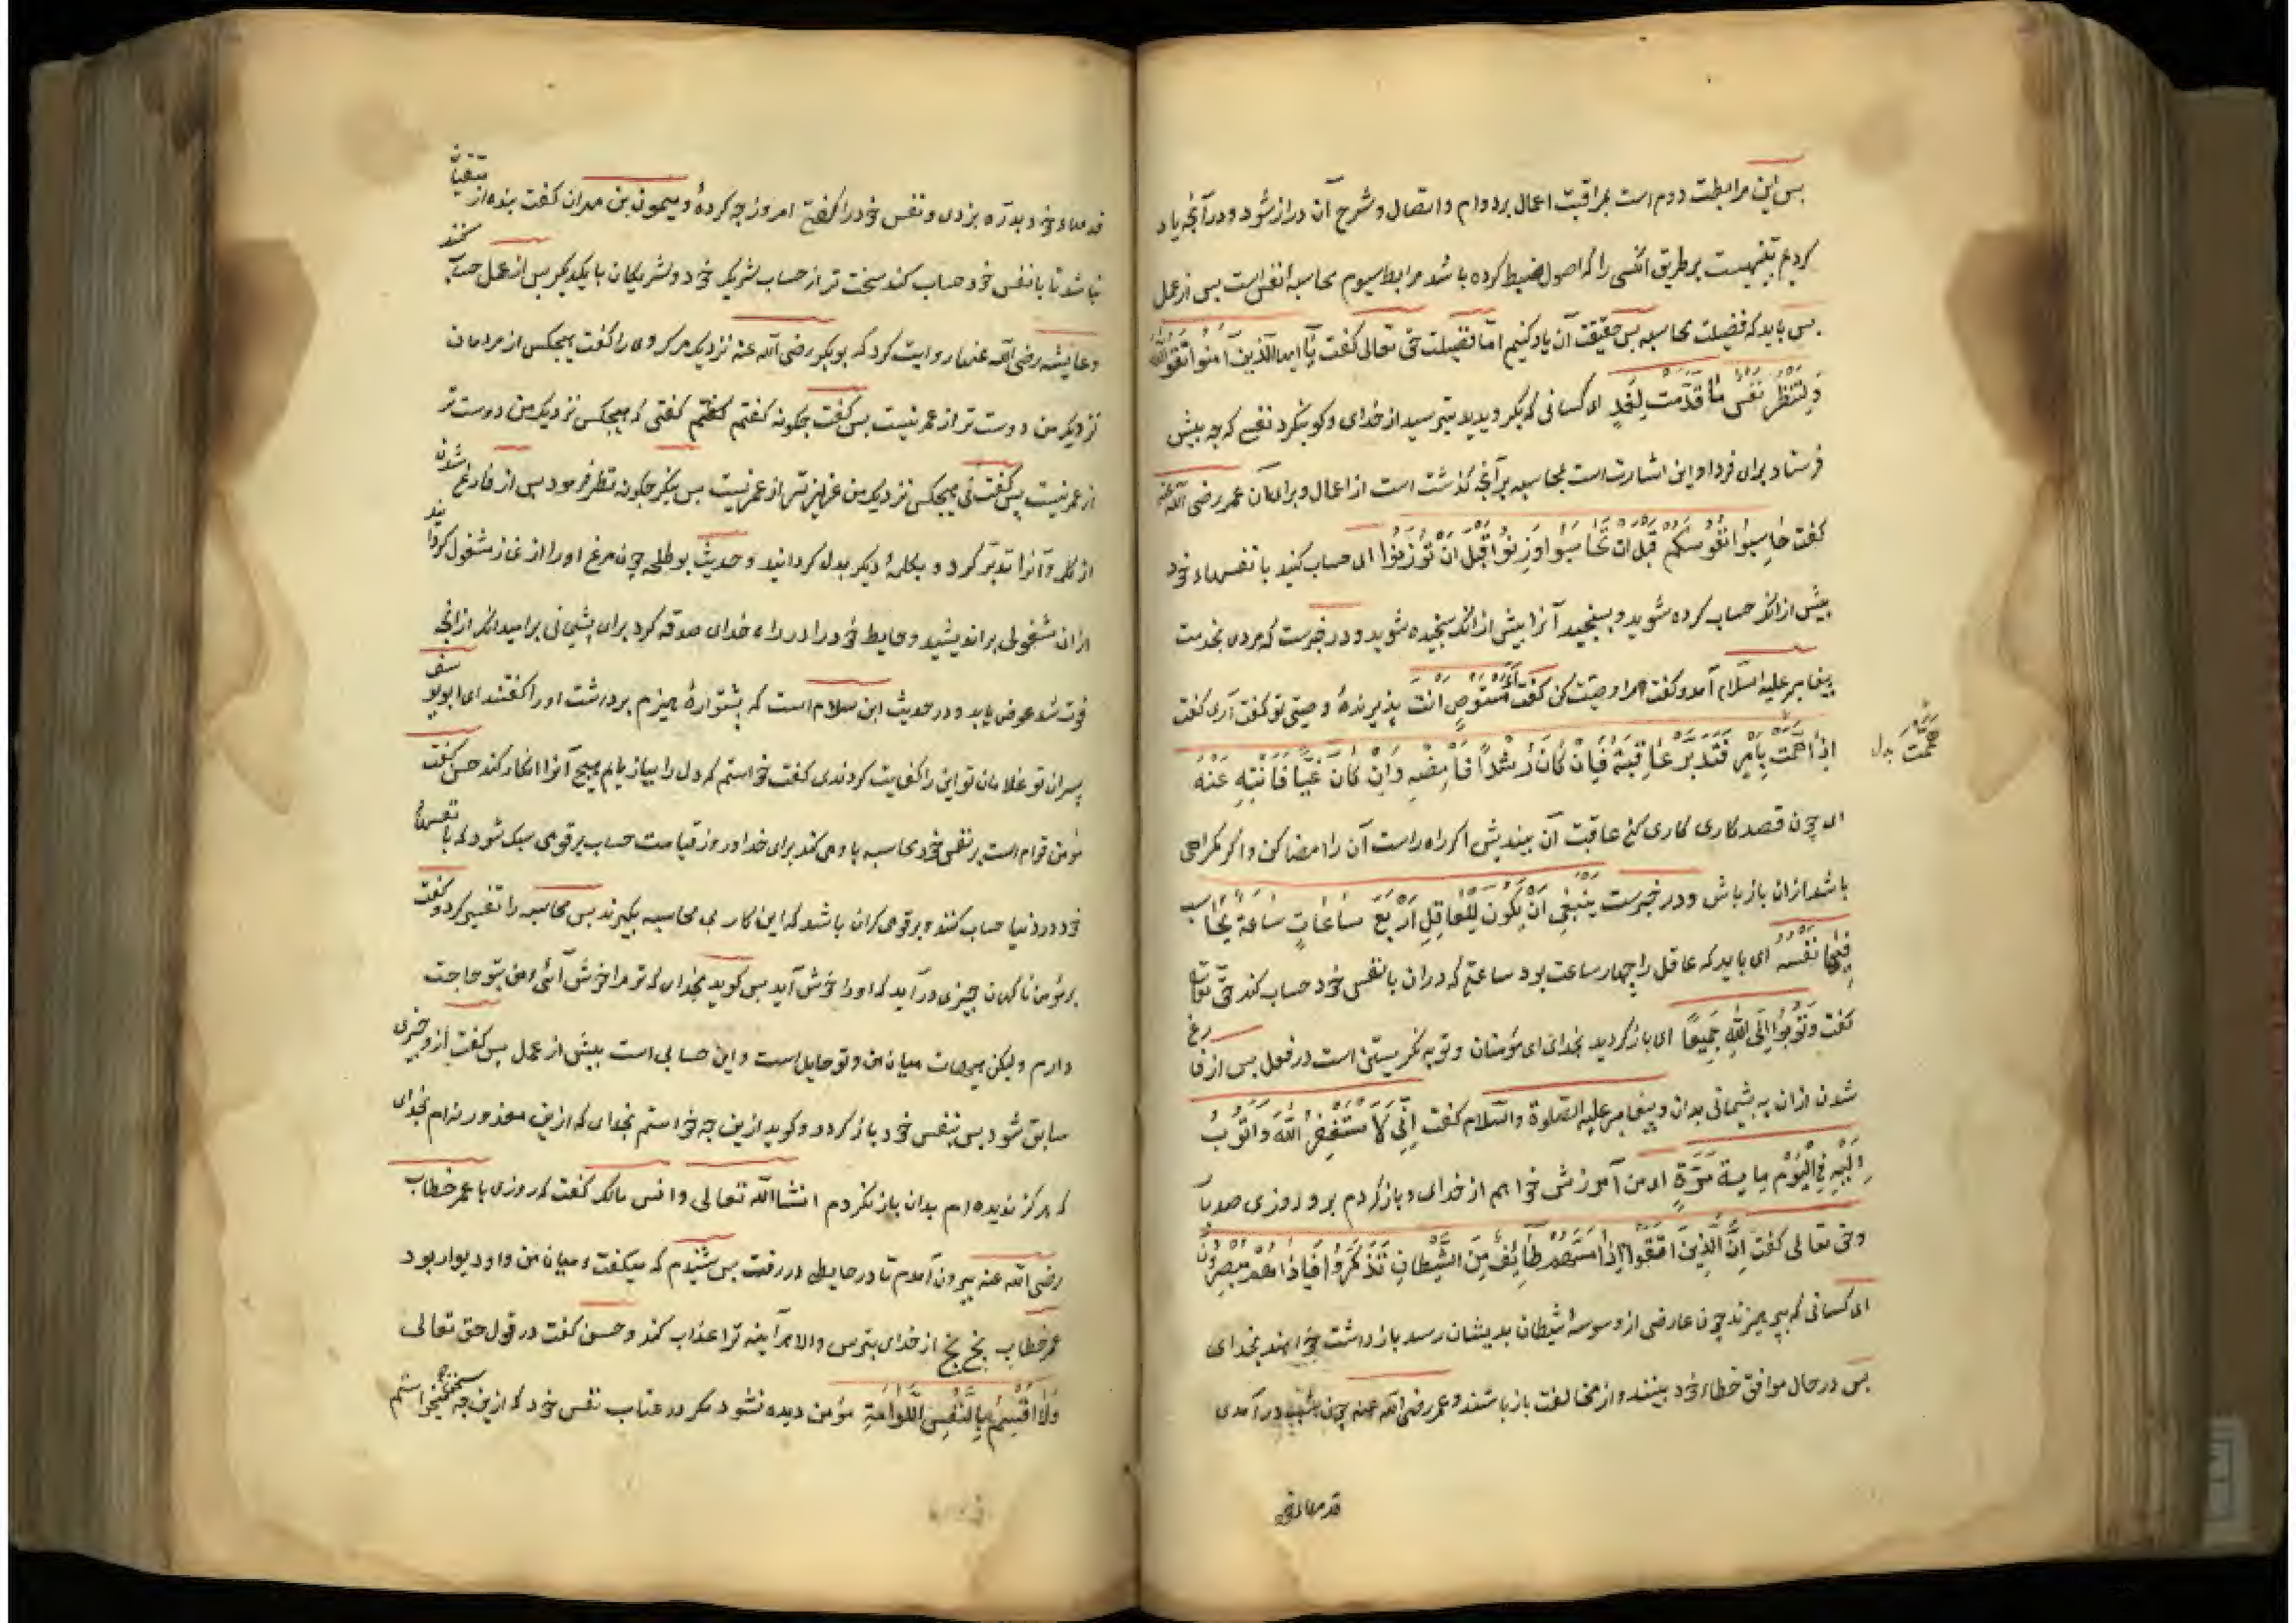 پس این مرابطت دوم است بمراقبت اعمال بر دوام و اتصال و شرح آن دراز شود و در آنچه یاد
کردیم تنبهیست بر طریق آنکسی را که اصول ضبط کرده باشد مرابط سیوم محاسبه نفس است پس از عمل
پس باید که فضیلت محاسبه پس حقیقت آن یاد کنیم اما فضیلت حق تعالی کفت یَا ایها الَّذِینَ آمَنُوا اتَّقُوا اللّٰه
وَلْتَنْظُرْ نَفْسٌ مَا قَدَّمَتْ لِغَدٍ ای کسانی که بکرویدید بترسید از خدای و کو بنکرد نفسی که چه پیش
فرستاد برای فردا و این اشارت است بمحاسبه بر آنچه کذشت است از اعمال و برای آن عمر رضی الله عنه
کفت حَاسِبُوا اَنْفُسَکُمْ قَبْلَ اَنْ تُحَاسَبُوا وَزِنُوا قَبْلَ اَنْ تُوزَنُوا ای حساب کنید با نفسهاء خود
پیش از انک حساب کرده شوید و بسنجید آنرا پیش از انک سنجیده شوید و در خبرست که مردی بخدمت
پیغامبر علیه السلام آمد و کفت مرا وصیت کن کفت اَمُسْتَوْصٍ اَنْتَ پذیرندهٔ وصیتی تو کفت آری کفت
اِذَا هَمَمْتَ بِاَمْرٍ فَتَدَبَّرْ عَاقِبَتَهُ فَاِنْ کَانَ رُشْدًا فَاَمْضِهِ وَاِنْ کَانَ غَیًّا فَانْتَهِ عَنْهُ
ای چون قصد کاری کنی عاقبت آن بیندیش اکر راه راست آن را امضا کن و اکر کمراهی
باشد ازان باز باش و در خبرست یَنْبَغِی اَنْ یَکُونَ لِلْعَاقِلِ اَرْبَعُ سَاعَاتٍ سَاعَةٌ یُحَاسِبُ
فِیهَا نَفْسَهُ ای باید که عاقل را چهار ساعت بود ساعتی که دران با نفس خود حساب کند حق تعالی
کفت وَتُوبُوا اِلَی اللّٰهِ جَمِیعًا ای باز کردید بخدای ای مؤمنان و توبه نکریستن است در فعل پس از فارغ
شدن ازان به پشیمانی بدان و پیغامبر علیه الصلوة والسلام کفت اِنِّی لَاَسْتَغْفِرُ اللّٰهَ وَاَتُوبُ
اِلَیْهِ فِی الْیَوْمِ مِایَةَ مَرَّةٍ ای من آموزش خواهم از خدای و باز کردم برو روزی صد بار
و حق تعالی کفت اِنَّ الَّذِینَ اتَّقَوْا اِذَا مَسَّهُمْ طَائِفٌ مِنَ الشَّیْطَانِ تَذَکَّرُوا فَاِذَا هُمْ مُبْصِرُونَ
ای کسانی که بپرهیزند چون عارضی از وسوسهٔ شیطان بدیشان رسد بازداشت خواهند بخدای
پس در حال موافق خطاء خود ببینند و از مخالفت باز باشند و عمر رضی الله عنه چون شب درآمدی
قدمهاء خود
هممت بدل
قدمهاء خود بدرّه بزدی و نفس خود را کفتی امروز چه کردهٔ و میمون بن مهران کفت بنده از متقیان
نباشد تا با نفس خود حساب کند سخت تر از حساب شریک خود و شریکان با یکدیکر پس از عمل حساب کنند
و عایشه رضی الله عنها روایت کرد که بوبکر رضی الله عنه نزدیک مرک وی را کفت هیچکس از مردمان
نزدیک من دوست تر از عمر نیست پس کفت چکونه کفتم کفتم کفتی که هیچکس نزدیک من دوست تر
از عمر نیست پس کفت نی هیچکس نزدیک من عزیز تر از عمر نیست پس بنکر چکونه نظر فرمود پس از فارغ شدن
از کلمه و آنرا تدبر کرد و بکلمهٔ دیکر بدل کردانید و حدیث بوطلحه چون مرغ او را از نماز مشغول کردانید
ازان مشغولی براندیشید و حایط خود را در راه خدای صدقه کرد برای پشیمانی بر امید انک از آنچه
فوت شد عوض یابد و در حدیث ابن سلام است که پشتوارهٔ هیزم برداشت او را کفتند ای ابو یوسف
پسران تو غلامان تو این را کفایت کردندی کفت خواستم که دل را بیازمایم هیچ آنرا انکار کند حسن کفت
مؤمن قوام است بر نفس خود محاسبه با و می کند برای خدا و روز قیامت حساب بر قومی سبک شود که با نفس
خود در دنیا حساب کنند و بر قومی کران باشد که این کار بی محاسبه بکیرند پس محاسبه را تفسیر کرد و کفت
بر مؤمن ناکهان چیزی درآید که او را خوش آید پس کوید بخدای که تو مرا خوش آئی و من بتو حاجت
دارم ولیکن هیهات میان من و تو حایل است و این حسابی است پیش از عمل پس کفت ازو چیزی
سابق شود پس بنفس خود باز کردد و کوید ازین چه خواستم بخدای که ازین معذور نه ام بخدای
که هرکز نه ام بدان باز نکردم انشا الله تعالی و انس مالک کفت که روزی با عمر خطاب
رضی الله عنه بیرون آمدم تا در حایطی در رفت پس شنیدم که میکفت و میان من و او دیوار بود
عمر خطاب بخ بخ از خدای بترس والا هرآینه ترا عذاب کند و حسن کفت در قول حق تعالی
وَلَا اُقْسِمُ بِالنَّفْسِ اللَّوَّامَةِ مؤمن دیده نشود مکر در عتاب نفس خود که ازین چه میخواستم